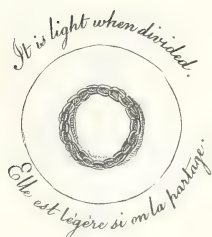 It is light when divided.
Elle est légére si on la partage.